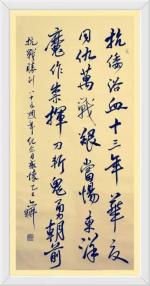 抗倭浴血十三年華夏
同仇萬戰艱當惕東洋
魔作祟揮刀斬鬼勇朝前
抗戰勝利八十週年紀念日感懷乙巳